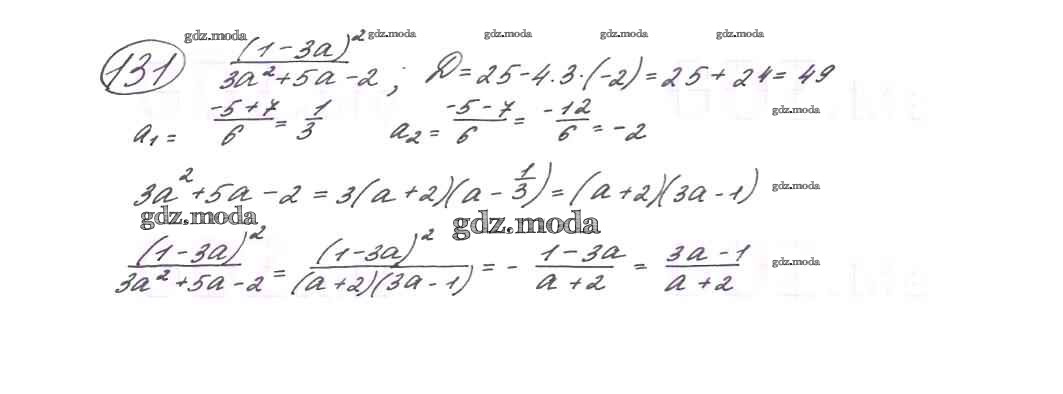 gdz.moda gdz.moda gdz.moda gdz.moda gdz.moda
131 (1-3a)²/(3a²+5a-2); D=25-4·3·(-2)=25+24=49
a₁= (-5+7)/6 = 1/3 a₂= (-5-7)/6 = -12/6 = -2 gdz.moda
3a²+5a-2=3(a+2)(a-1/3)=(a+2)(3a-1) gdz.moda
gdz.moda gdz.moda
(1-3a)²/(3a²+5a-2) = (1-3a)²/((a+2)(3a-1)) = - (1-3a)/(a+2) = (3a-1)/(a+2) gdz.moda